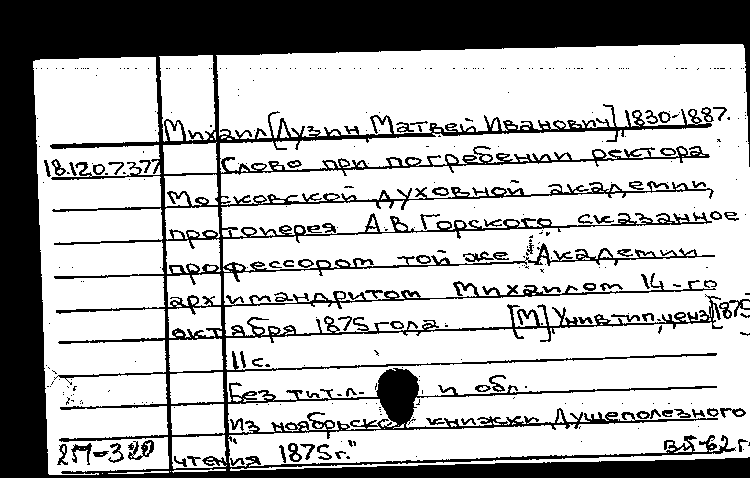 Михаил [Лузин, Матвей Иванович], 1830-1887.
18.120.7.377 Слово при погребении ректора
Московской духовной академии,
протоиерея А.В. Горского, сказанное
профессором той же Академии
архимандритом Михаилом 14-го
октября 1875 года. [М.], Унив. тип., ценз. [1875]
11 с.
Без тит. л. и обл.
Из ноябрьской книжки "Душеполезного
чтения 1875 г."
257-320 ВЯ-62 г.